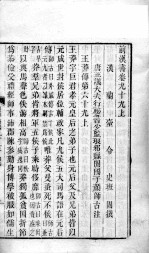 前漢書卷九十九上
漢蘭臺令史班固撰
唐正議大夫行祕書少監琅邪縣開國子顏師古注
王莽傳第六十九上
王莽字巨君孝元皇后之弟子也元后父及兄弟皆以
元成世封侯居位輔政家凡九侯五大司馬語在元后
傳
唯莽父曼蚤死不侯
莽羣兄弟皆將軍五侯子乘時侈靡
以輿馬聲色佚游相高
莽獨孤貧因折節
爲恭儉受禮經師事沛郡陳參勤身博學被服如儒